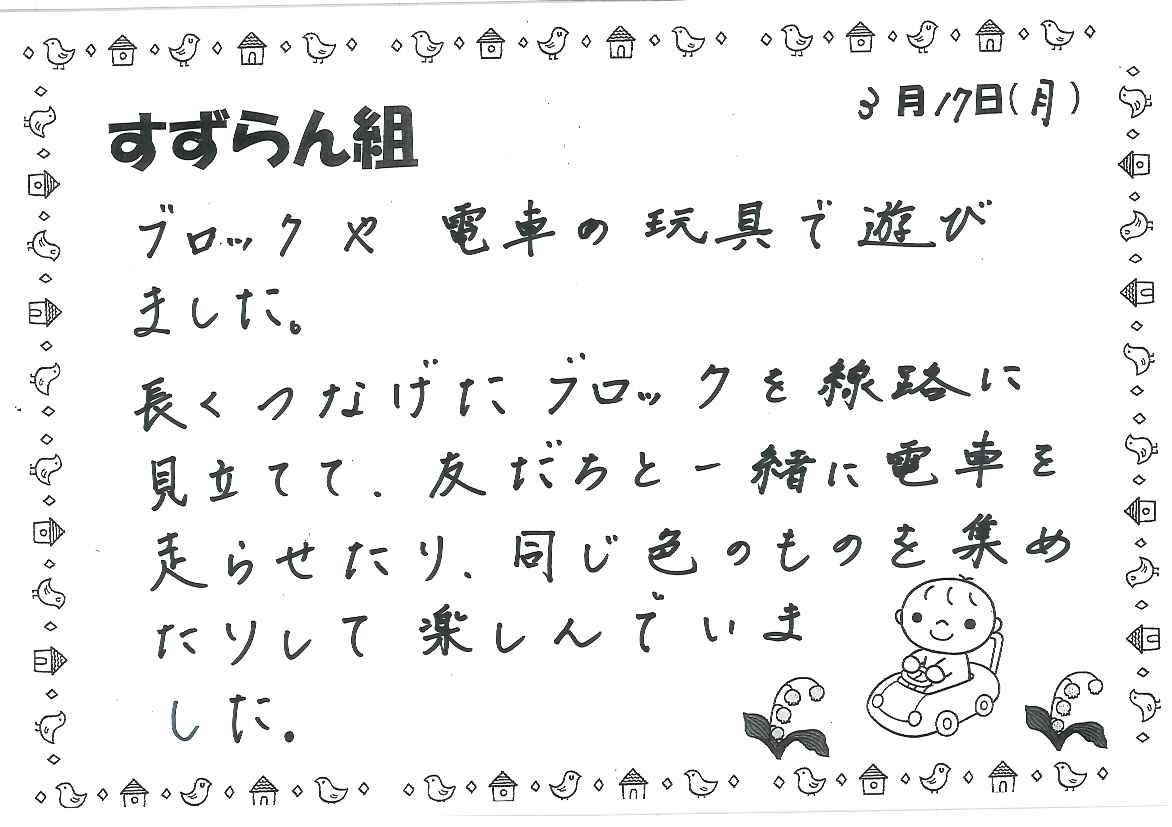 3月17日(月)
すずらん組
ブロックや電車の玩具で遊び
ました。
長くつなげたブロックを線路に
見立てて、友だちと一緒に電車を
走らせたり、同じ色のものを集め
たりして楽しんでいま
した。